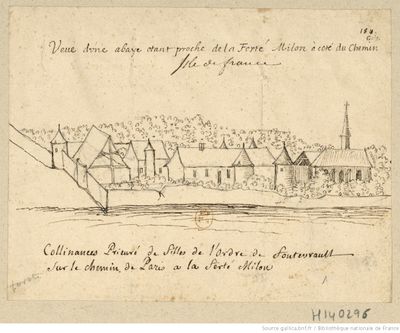 184.
Veue dune abaye etant proche de la Ferté Milon a coté du Chemin
Isle de france
Collinances Prieuré de filles de l'ordre de Fontevrault
Sur le chemin de Paris a la Ferté Milon
H140296
Source gallica.bnf.fr / Bibliothèque nationale de France